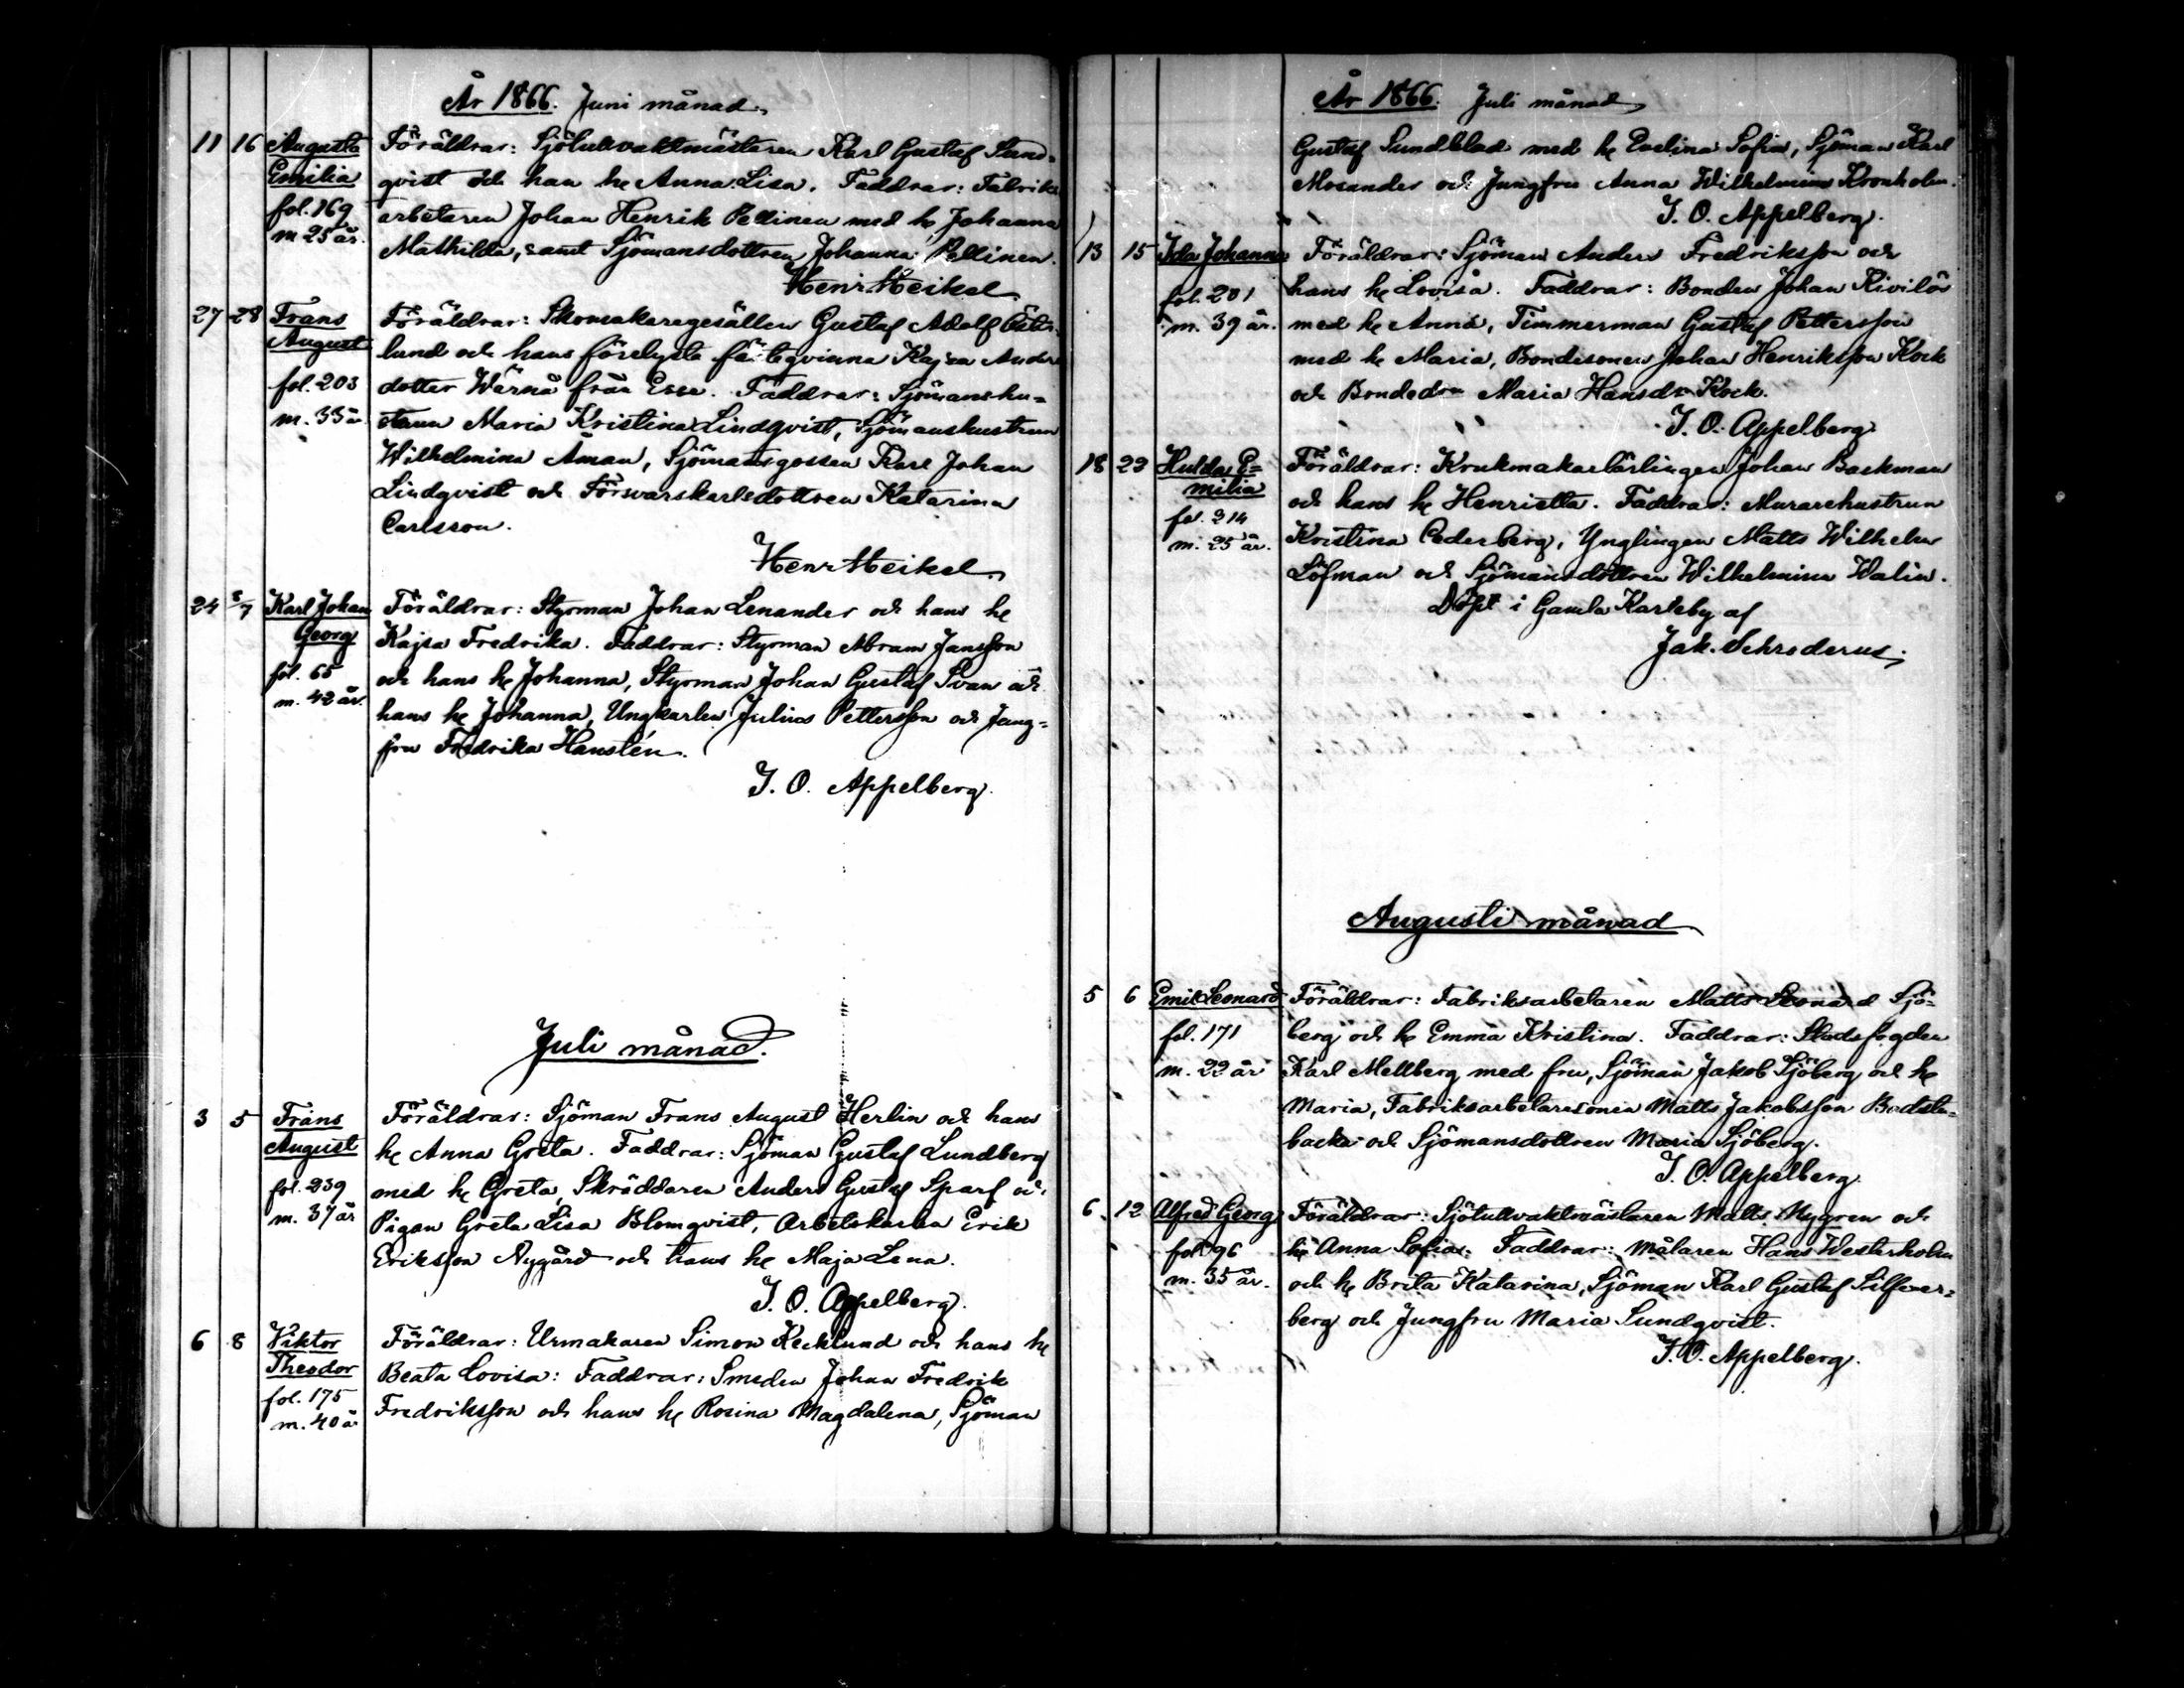 År 1866. Juni månad.
11 16 Augusta Emilia fol. 169 m 25 år.
Föräldrar: Sjötullvaktmästaren Karl Gustaf Sund-
qvist och han he Anna Lisa. Faddrar: Fabriks
arbetaren Johan Henrik Pellinen med he Johanna
Mathilda, samt Sjömansdottren Johanna Pellinen.
Henr Heikel
27 28 Frans August fol. 203 m. 33 år
Föräldrar: Skomakaregesällen Gustaf Adolf Öster-
lund och hans förelysta fästeqvinna Kajsa Anders
dotter Wärnå från Esse. Faddrar: Sjömanshu-
strun Maria Kristina Lindqvist, Sjömanshustrun
Wilhelmina Åman, Sjömansgossen Karl Johan
Lindqvist och Försvarskarlsdottren Katarina
Carlsson.
Henr Heikel
24 8/7 Karl Johan Georg fol. 65 m. 42 år.
Föräldrar: Styrman Johan Lenander och hans he
Kajsa Fredrika. Faddrar: Styrman Abram Jansson
och hans he Johanna, Styrman Johan Gustaf Svan och
hans he Johanna, Ungkarlen Julius Pettersson och Jung-
fru Fredrika Hanstén.
J. O. Appelberg.
Juli månad.
3 5 Frans August fol. 239 m. 37 år
Föräldrar: Sjöman Frans August Herlin och hans
he Anna Greta. Faddrar: Sjöman Gustaf Lundberg
med he Greta, Skräddaren Anders Gustaf Sparf och
Pigan Greta Lisa Blomqvist, Arbetskarlen Erik
Eriksson Nygård och hans he Maja Lena.
J. O. Appelberg.
6 8 Viktor Theodor fol. 175 m. 40 år
Föräldrar: Urmakaren Simon Kecklund och hans he
Beata Lovisa: Faddrar: Smeden Johan Fredrik
Fredriksson och hans he Rosina Magdalena, Sjöman
År 1866. Juli månad
Gustaf Sundblad med he Evelina Sofia, Sjöman Karl
Mosander och Jungfru Anna Wilhelmina Kronholm.
J. O. Appelberg.
13 15 Ida Johanna fol. 201 m. 39 år.
Föräldrar: Sjöman Anders Fredriksson och
hans he Lovisa. Faddrar: Bonden Johan Kivilös
med he Anna, Timmerman Gustaf Pettersson
med he Maria, Bondesonen Johan Henriksson Kock
och Bondedr Maria Hansdr Kock.
J. O. Appelberg
18 22 Hulda E-milia fol. 214 m. 25 år.
Föräldrar: Krukmakarlärlingen Johan Backman
och hans he Henrietta. Faddrar: Murarehustrun
Kristina Cederberg, Ynglingen Matts Wilhelm
Löfman och Sjömansdottren Wilhelmina Walin.
Döpt i Gamla Karleby af
Jak. Schroderus.
Augusti månad
5 6 Emil Leonard fol. 171 m. 22 år
Föräldrar: Fabriksarbetaren Matts Leonard Sjö-
berg och he Emma Kristina. Faddrar: Stadsfogden
Karl Mellberg med fru, Sjöman Jakob Sjöberg och he
Maria, Fabriksarbetaresonen Matts Jakobsson
backa och Sjömansdottren Maria Sjöberg.
J. O. Appelberg.
6 12 Alfred Georg fol. 96 m. 35 år.
Föräldrar: Sjötullvaktmästaren Matts Nygren och
he Anna Sofia. Faddrar: Målaren Hans Westerholm
och he Brita Katarina, Sjöman Karl Gustaf Silfver-
berg och Jungfru Maria Sundqvist.
J. O. Appelberg.